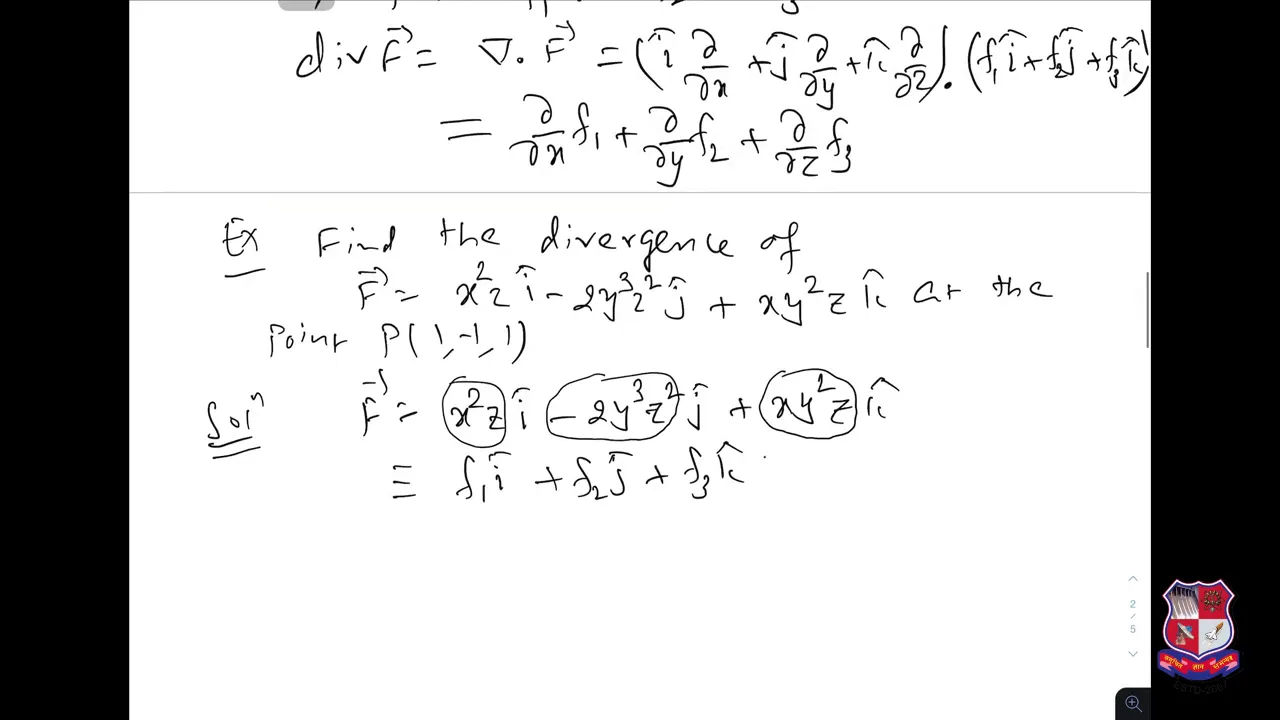 div F⃗ = ∇. F⃗ = (î ∂/∂x + ĵ ∂/∂y + k̂ ∂/∂z). (f₁î + f₂ĵ + f₃k̂)
= ∂/∂x f₁ + ∂/∂y f₂ + ∂/∂z f₃
Ex Find the divergence of
F⃗ = x²z î - 2y³z² ĵ + xy²z k̂ at the
point P(1,-1,1)
Solⁿ F⃗ = x²z î - 2y³z² ĵ + xy²z k̂
≡ f₁î + f₂ĵ + f₃k̂
2
/
5